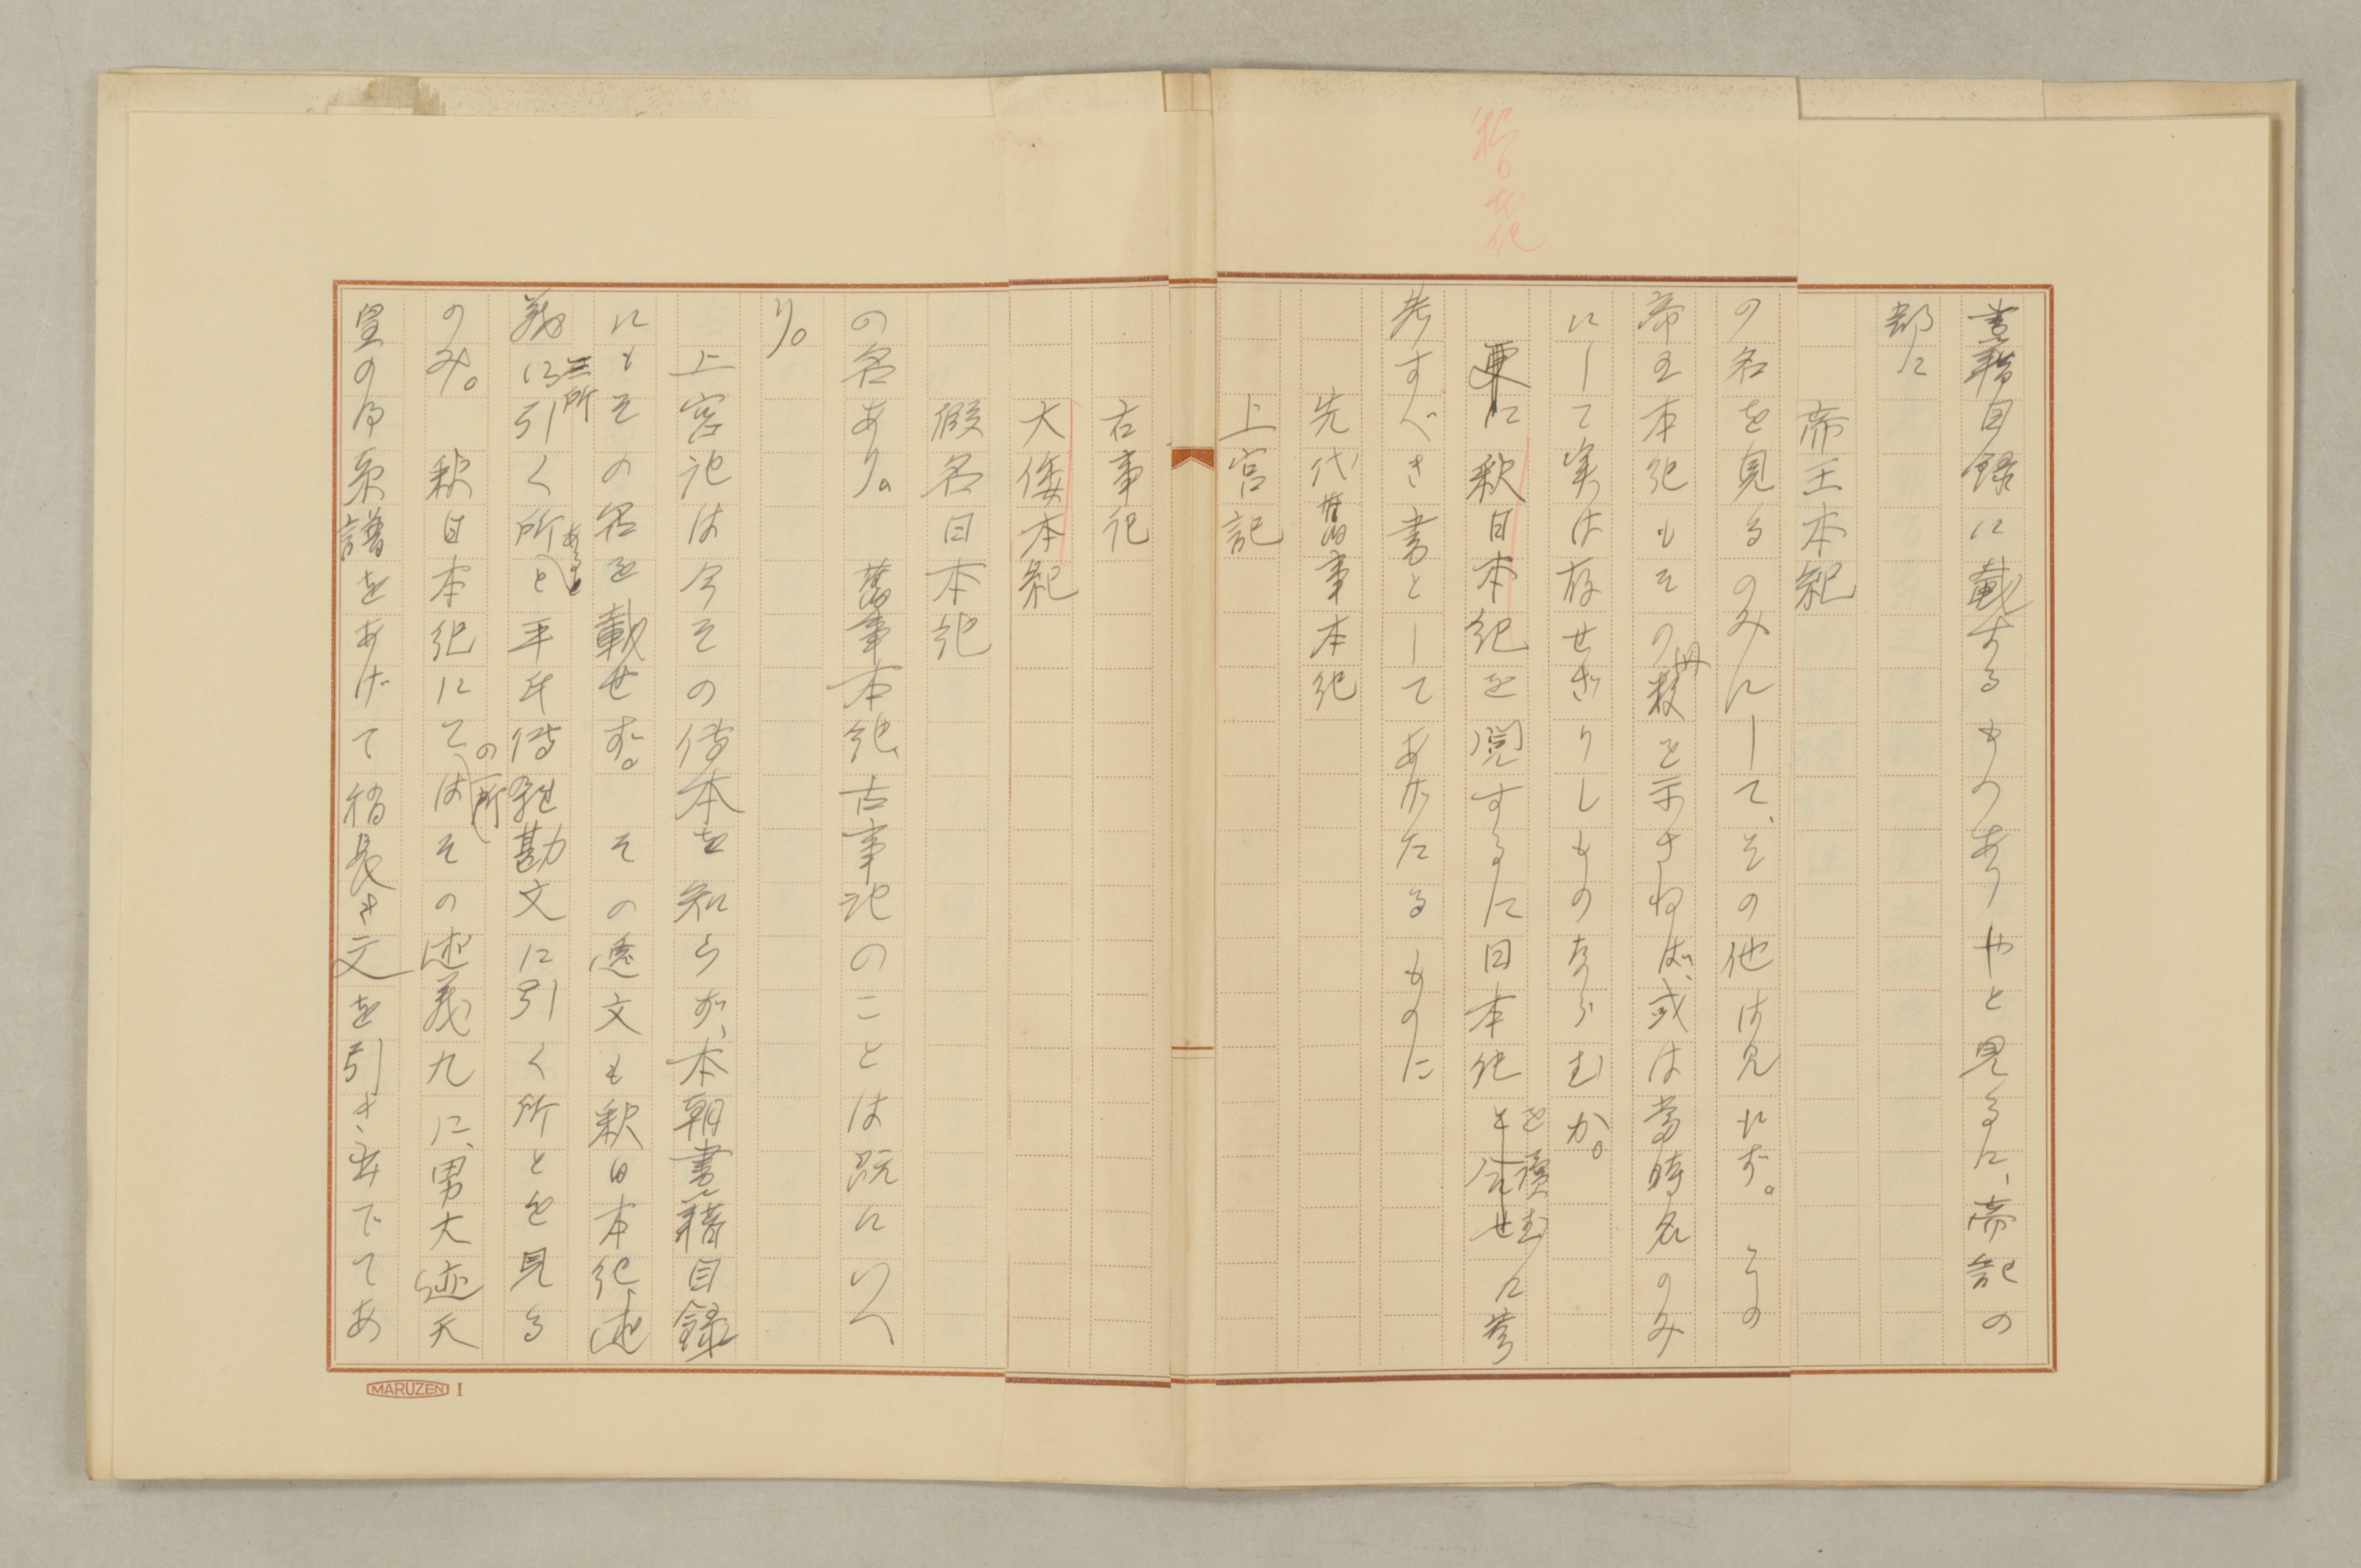 釈日本紀
書籍目録に載するものありやと見るに、帝記の
部に
帝王本紀
の名を見るのみにして、その他は見えず。この
帝王本紀もその册数を示さねば、或は当時名のみ
にして実は存せざりしものならむか。
更に釈日本紀を閲するに日本紀を讀むに参
考すべき書としてあげたるものに
先代舊事本紀
上宮記
古事記
大倭本紀
假名日本紀
の名あり。舊事本紀、古事記のことは既にいへ
り。
上宮記は今その傳本を知らず、本朝書籍目録
にもその名を載せず。その遺文も釈日本紀、述
義に三所引く所あると平氏傳雜勘文に引く所とを見る
のみ。釈日本紀にての一所はその述義九に、男大迹天
皇の御系譜をあげて稍長き文を引き、次でてあ
MARUZEN I